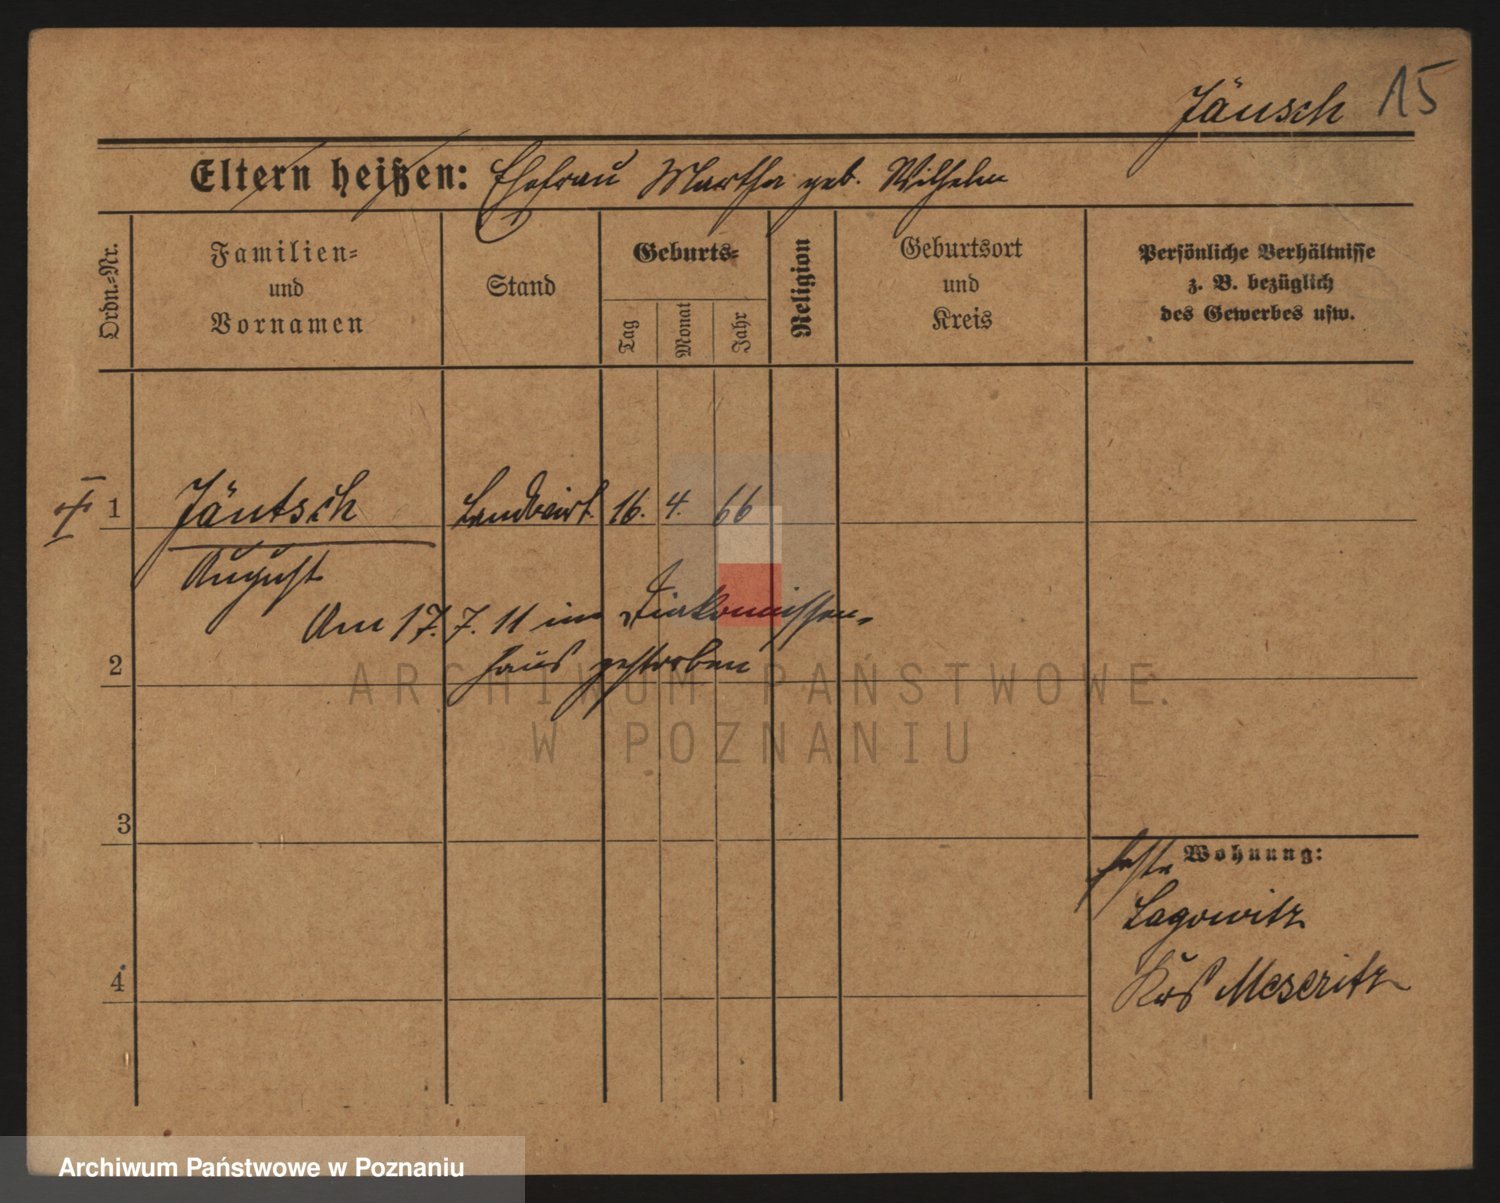 Jäusch 15
Eltern heißen: Ehefrau Martha geb. Wilhelm
Ordn.-Nr.
Familien-
und
Vornamen
Stand
Geburts-
Tag
Monat
Jahr
Religion
Geburtsort
und
Kreis
Persönliche Verhältnisse
z. B. bezüglich
des Gewerbes usw.
1 Jäutsch Landwirt 16. 4. 66
August
Am 17. 7. 11 im Diakonissen-
haus gestorben
2
3
4
Wohnung:
Lagowitz
Krs Meseritz
ARCHIWUM PAŃSTWOWE
W POZNANIU
Archiwum Państwowe w Poznaniu